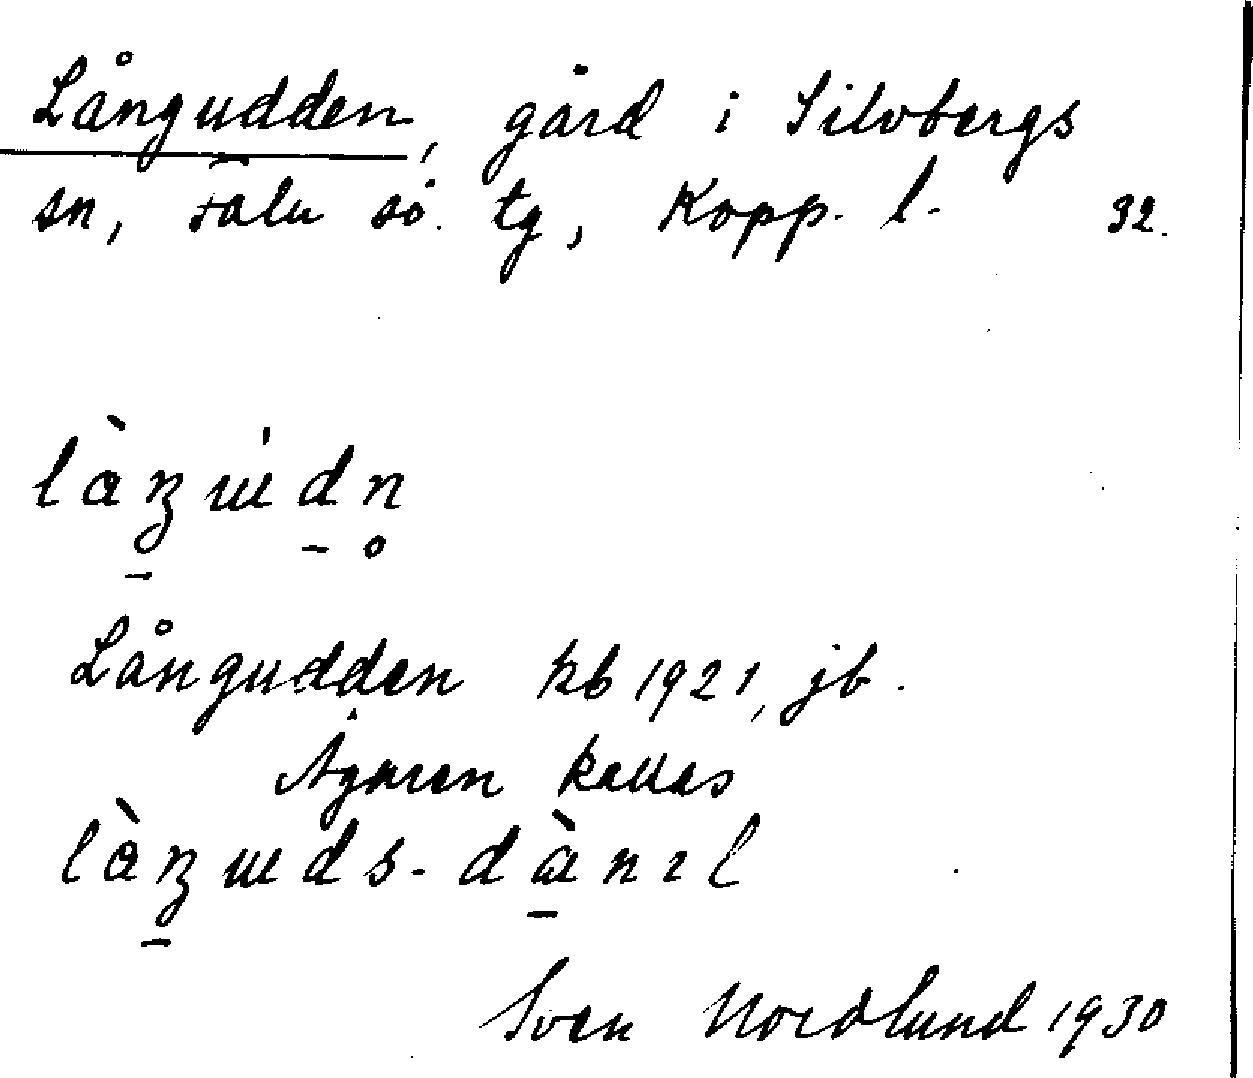 Långudden, gård i Silvbergs
sn, Falu sö. tg, Kopp. l. 32.
làŋɯ́dn̥
Långudden kb 1921, jb.
Ägaren kallas
làŋɯds-dànɪl
Sven Nordlund 1930